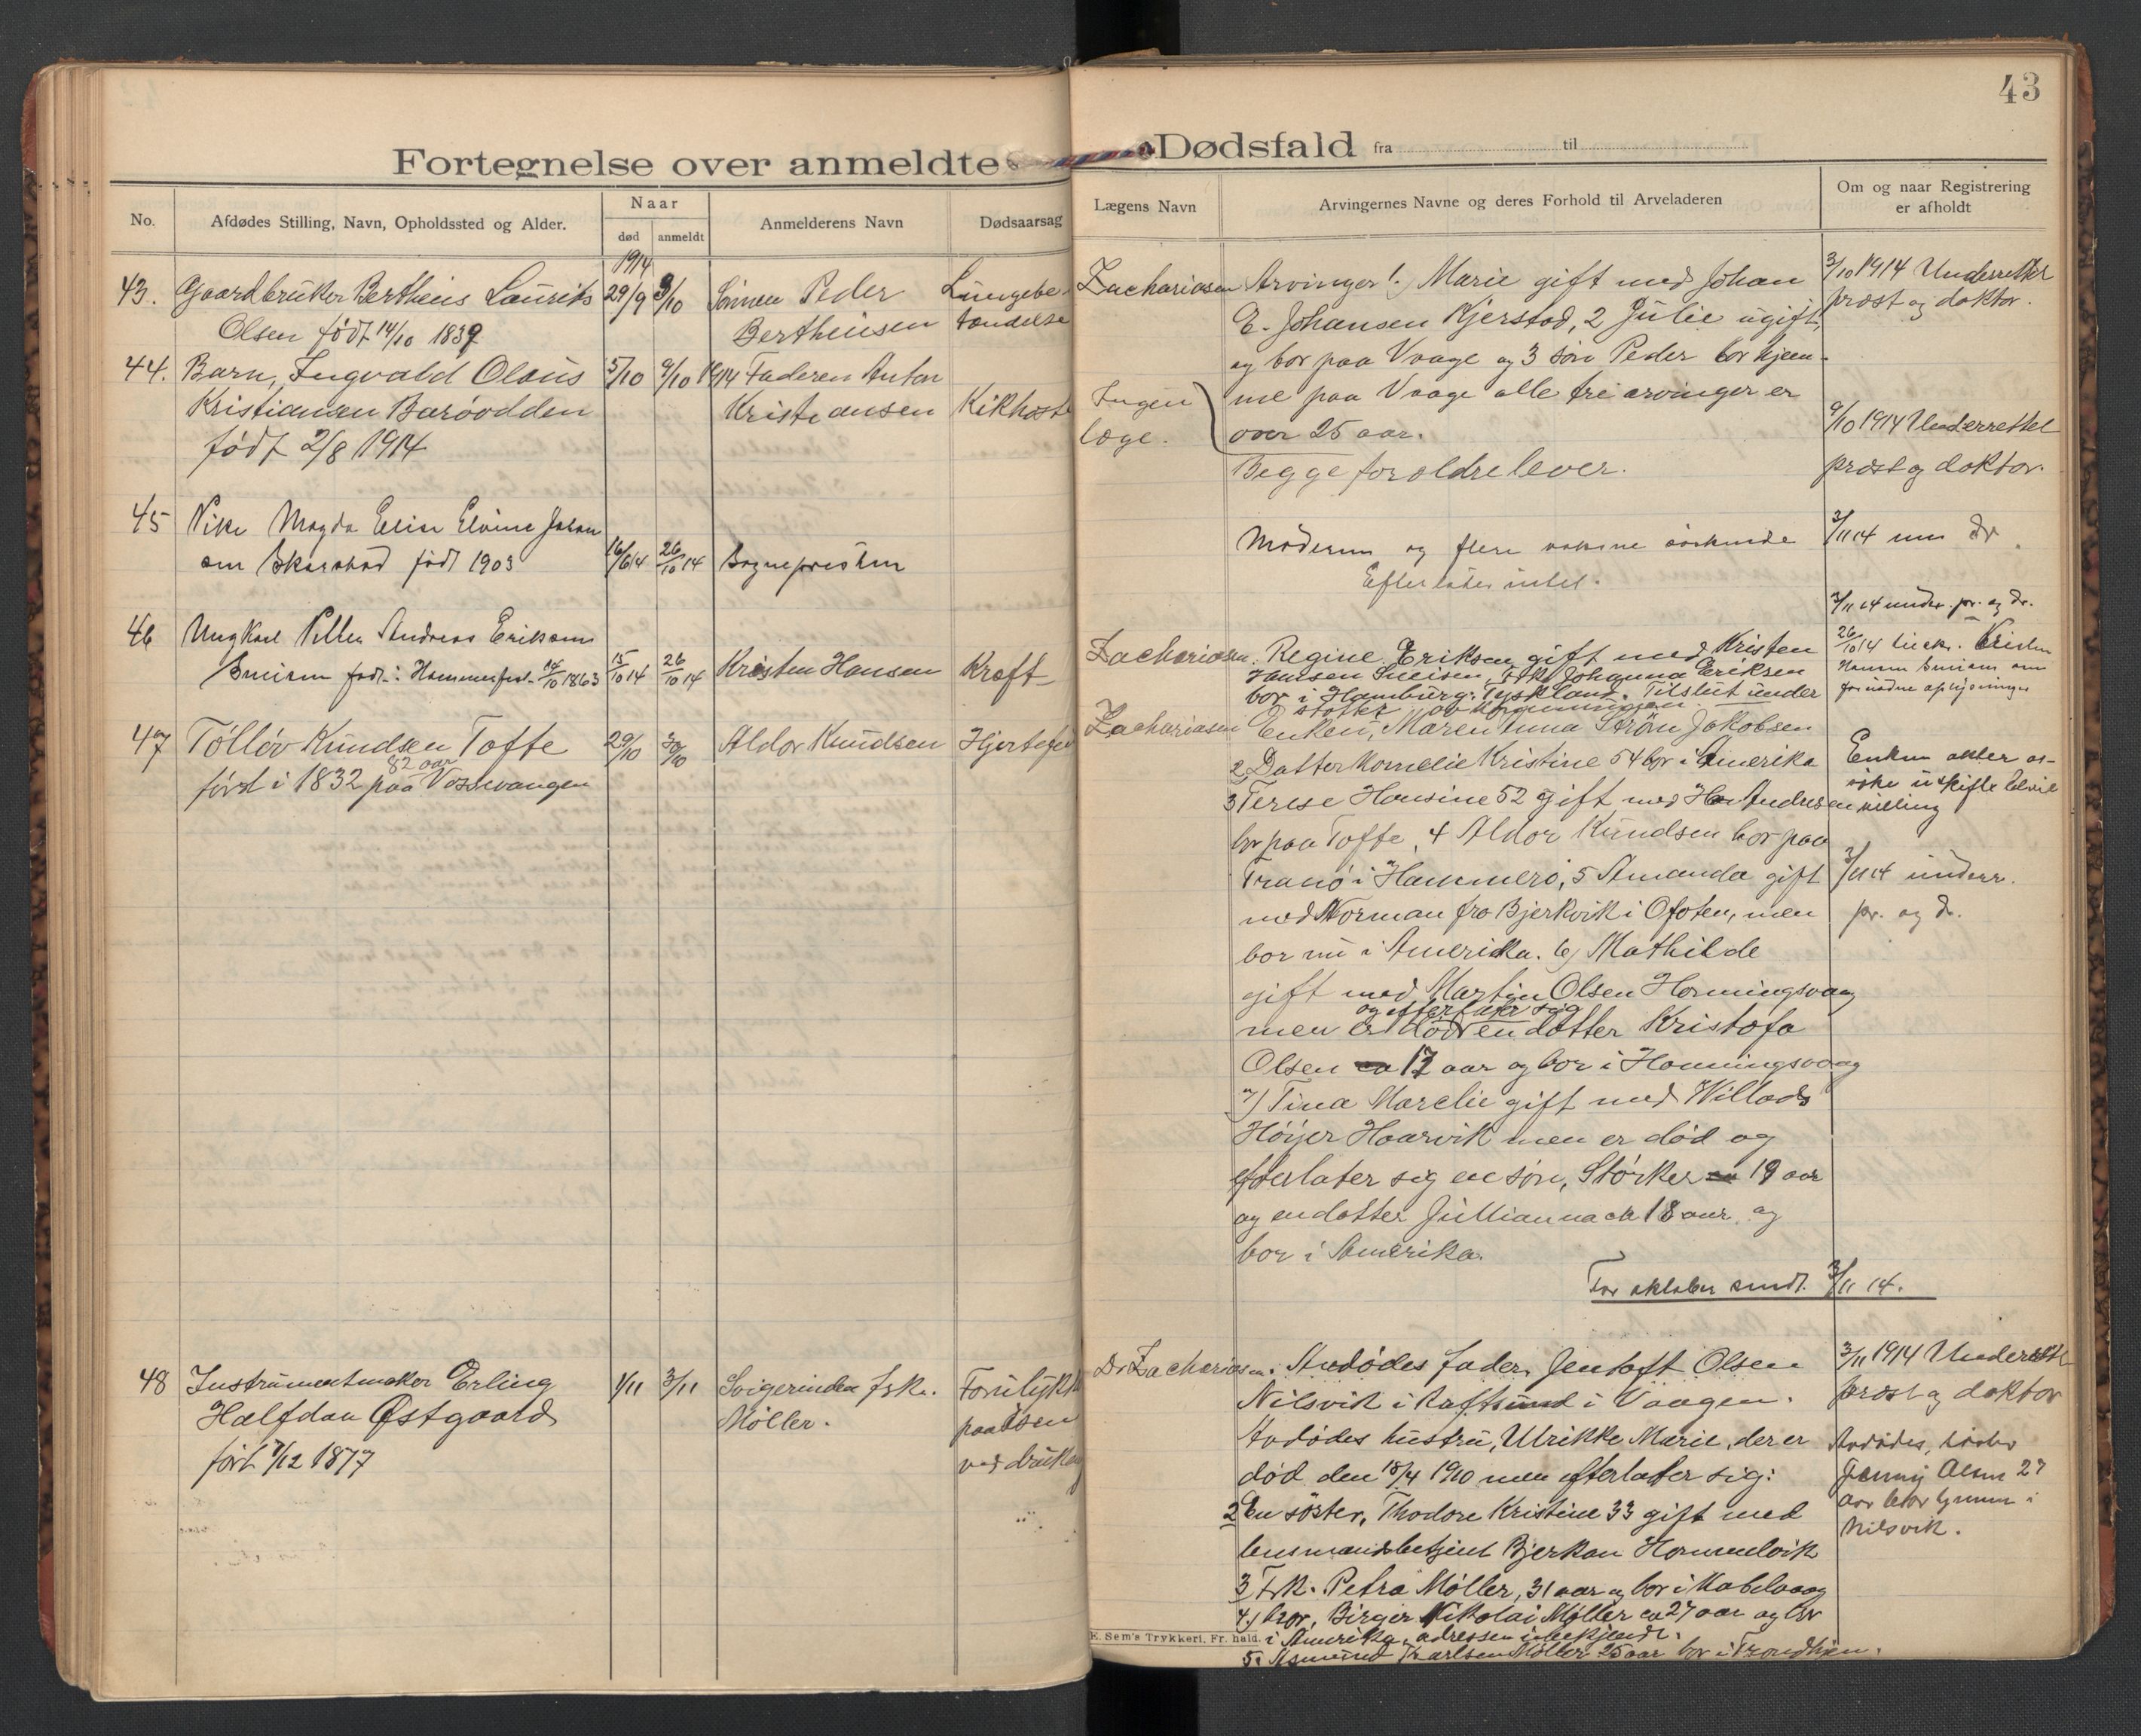 43
Fortegnelse over anmeldte Dødsfald fra til
No.
Afdødes Stilling, Navn, Opholdssted og Alder.
Naar
død
anmeldt
Anmelderens Navn
Dødsaarsag
Lægens Navn
Arvingernes Navne og deres Forhold til Arveladeren
Om og naar Registrering
er afholdt
1914
43. Gaardbruker Bertheus Laurits 29/9 3/10 Sönnen Peder Lungebe-
Olsen født 14/10 1839 Bertheusen tændelse
44. Barn, Ingvald Olaus 5/10 9/10 1914 Faderen Anton
Kristiansen Barøodden Kristiansen Kikhoste
født 2/8 1914
45 Pike Magda Elise Elvine Johan
sen Skarstad født 1903 16/6 14 26/10 14 Sognepresten
46 Ungkarl Petter Andreas Eriksen
født i Hammerfest 14/10 1863 15/10 14 26/10 14 Kristen Hansen Kræft
47 Tølløv Knudsen Toffe 29/10 30/10 Aldor Knudsen Hjertefeil
82 aar
født i 1832 paa Vossevangen
48 Instrumentmaker Erling 1/11 3/11 Svigerinden frk.
Halfdan Østgaard Møller.
født 7/12 1877
Zachariasen Arvinger 1. Marie gift med Johan
E. Johansen Kjerstad, 2 Julie ugift,
og bor paa Vaage og 3 søn Peder bor hjem-
me paa Vaage alle tre arvinger er
over 25 aar.
Ingen
læge.
Begge forældre lever.
3/10 1914 Underrettet
præst og doktor.
9/10 1914 Underrettet
præst og doktor.
Moderen og flere voksne søskende
Efterlater intet.
3/11 14 dr
3/11 14 under. pr. og dr.
Zachariasen. Regine Eriksen gift med Kristen
Hansen Johanna Eriksen
bor i Hamburg. Tyskland. Tilslut under
støttet av
26/10 14 Kristen
Hansen om
fornødne oplysninger
Zachariasen Enken, Maren Anna Strøm Jakobsen
2 Datter Kornelie Kristine 54 bor i Amerika
3 Terese Hansine 52 gift med H. Andresen
bor paa Toffe, 4 Aldor Knudsen bor paa
Tranø i Hammerø, 5 Amanda gift
med Norman fra Bjerkvik i Ofoten, men
bor nu i Amerika. 6) Mathilde
gift med Martin Olsen Honningsvaag
og efterlater sig
men er død en datter Kristofa
Olsen 17 aar og bor i Honningsvaag
7) Tina Marelie gift med Willads
Höyer Haarvik men er död og
efterlater sig en søn, Størker 19 aar
og en datter Jullianna ca 18 aar og
bor i Amerika.
Enken akter at
3/11 14 underr.
pr. og dr.
For oktober sendt. 3/11 14.
Dr Zachariasen. Avdødes fader, Jentoft Olsen
Nilsvik i Raftsund i Vaagen.
Avdødes hustru, Ulrikke Marie, der er
død den 18/4 1910 men efterlater sig:
2 En søster, Thodore Kristine 33 gift med
lensmandsbetjent Bjerkan Hommelvik
3 Frk. Petra Møller, 31 aar og bor i Kabelvaag
4) bror, Birger Nikolai Møller ca 27 aar og bor
i Amerika, adressen ubekjendt.
5. Asmund Karlsen Møller 25 aar bor i Trondhjem.
3/11 1914 Underrettet
præst og doktor
Avdødes søster
Jenny Olsen 27
aar bor hjemme i
Nilsvik.
E. Sem's Trykkeri, Fr. hald.